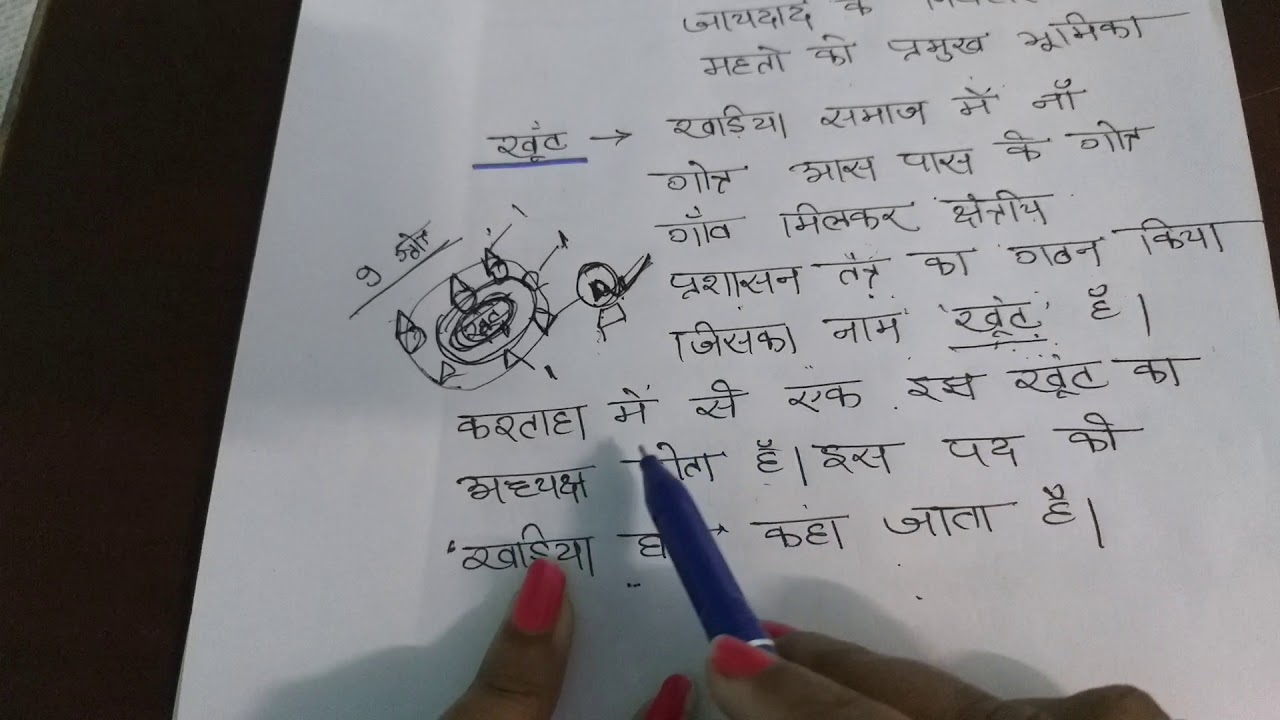 जायदाद के
महतो की प्रमुख भूमिका
खूंट → खड़िया समाज में नौ
गोत्र आस पास के गोत्र
गाँव मिलकर क्षेत्रीय
प्रशासन तंत्र का गठन किया
जिसका नाम 'खूंट' है।
करताहा में से एक इस खूंट का
अध्यक्ष होता है। इस पद को
'खड़िया कहा जाता है।
9